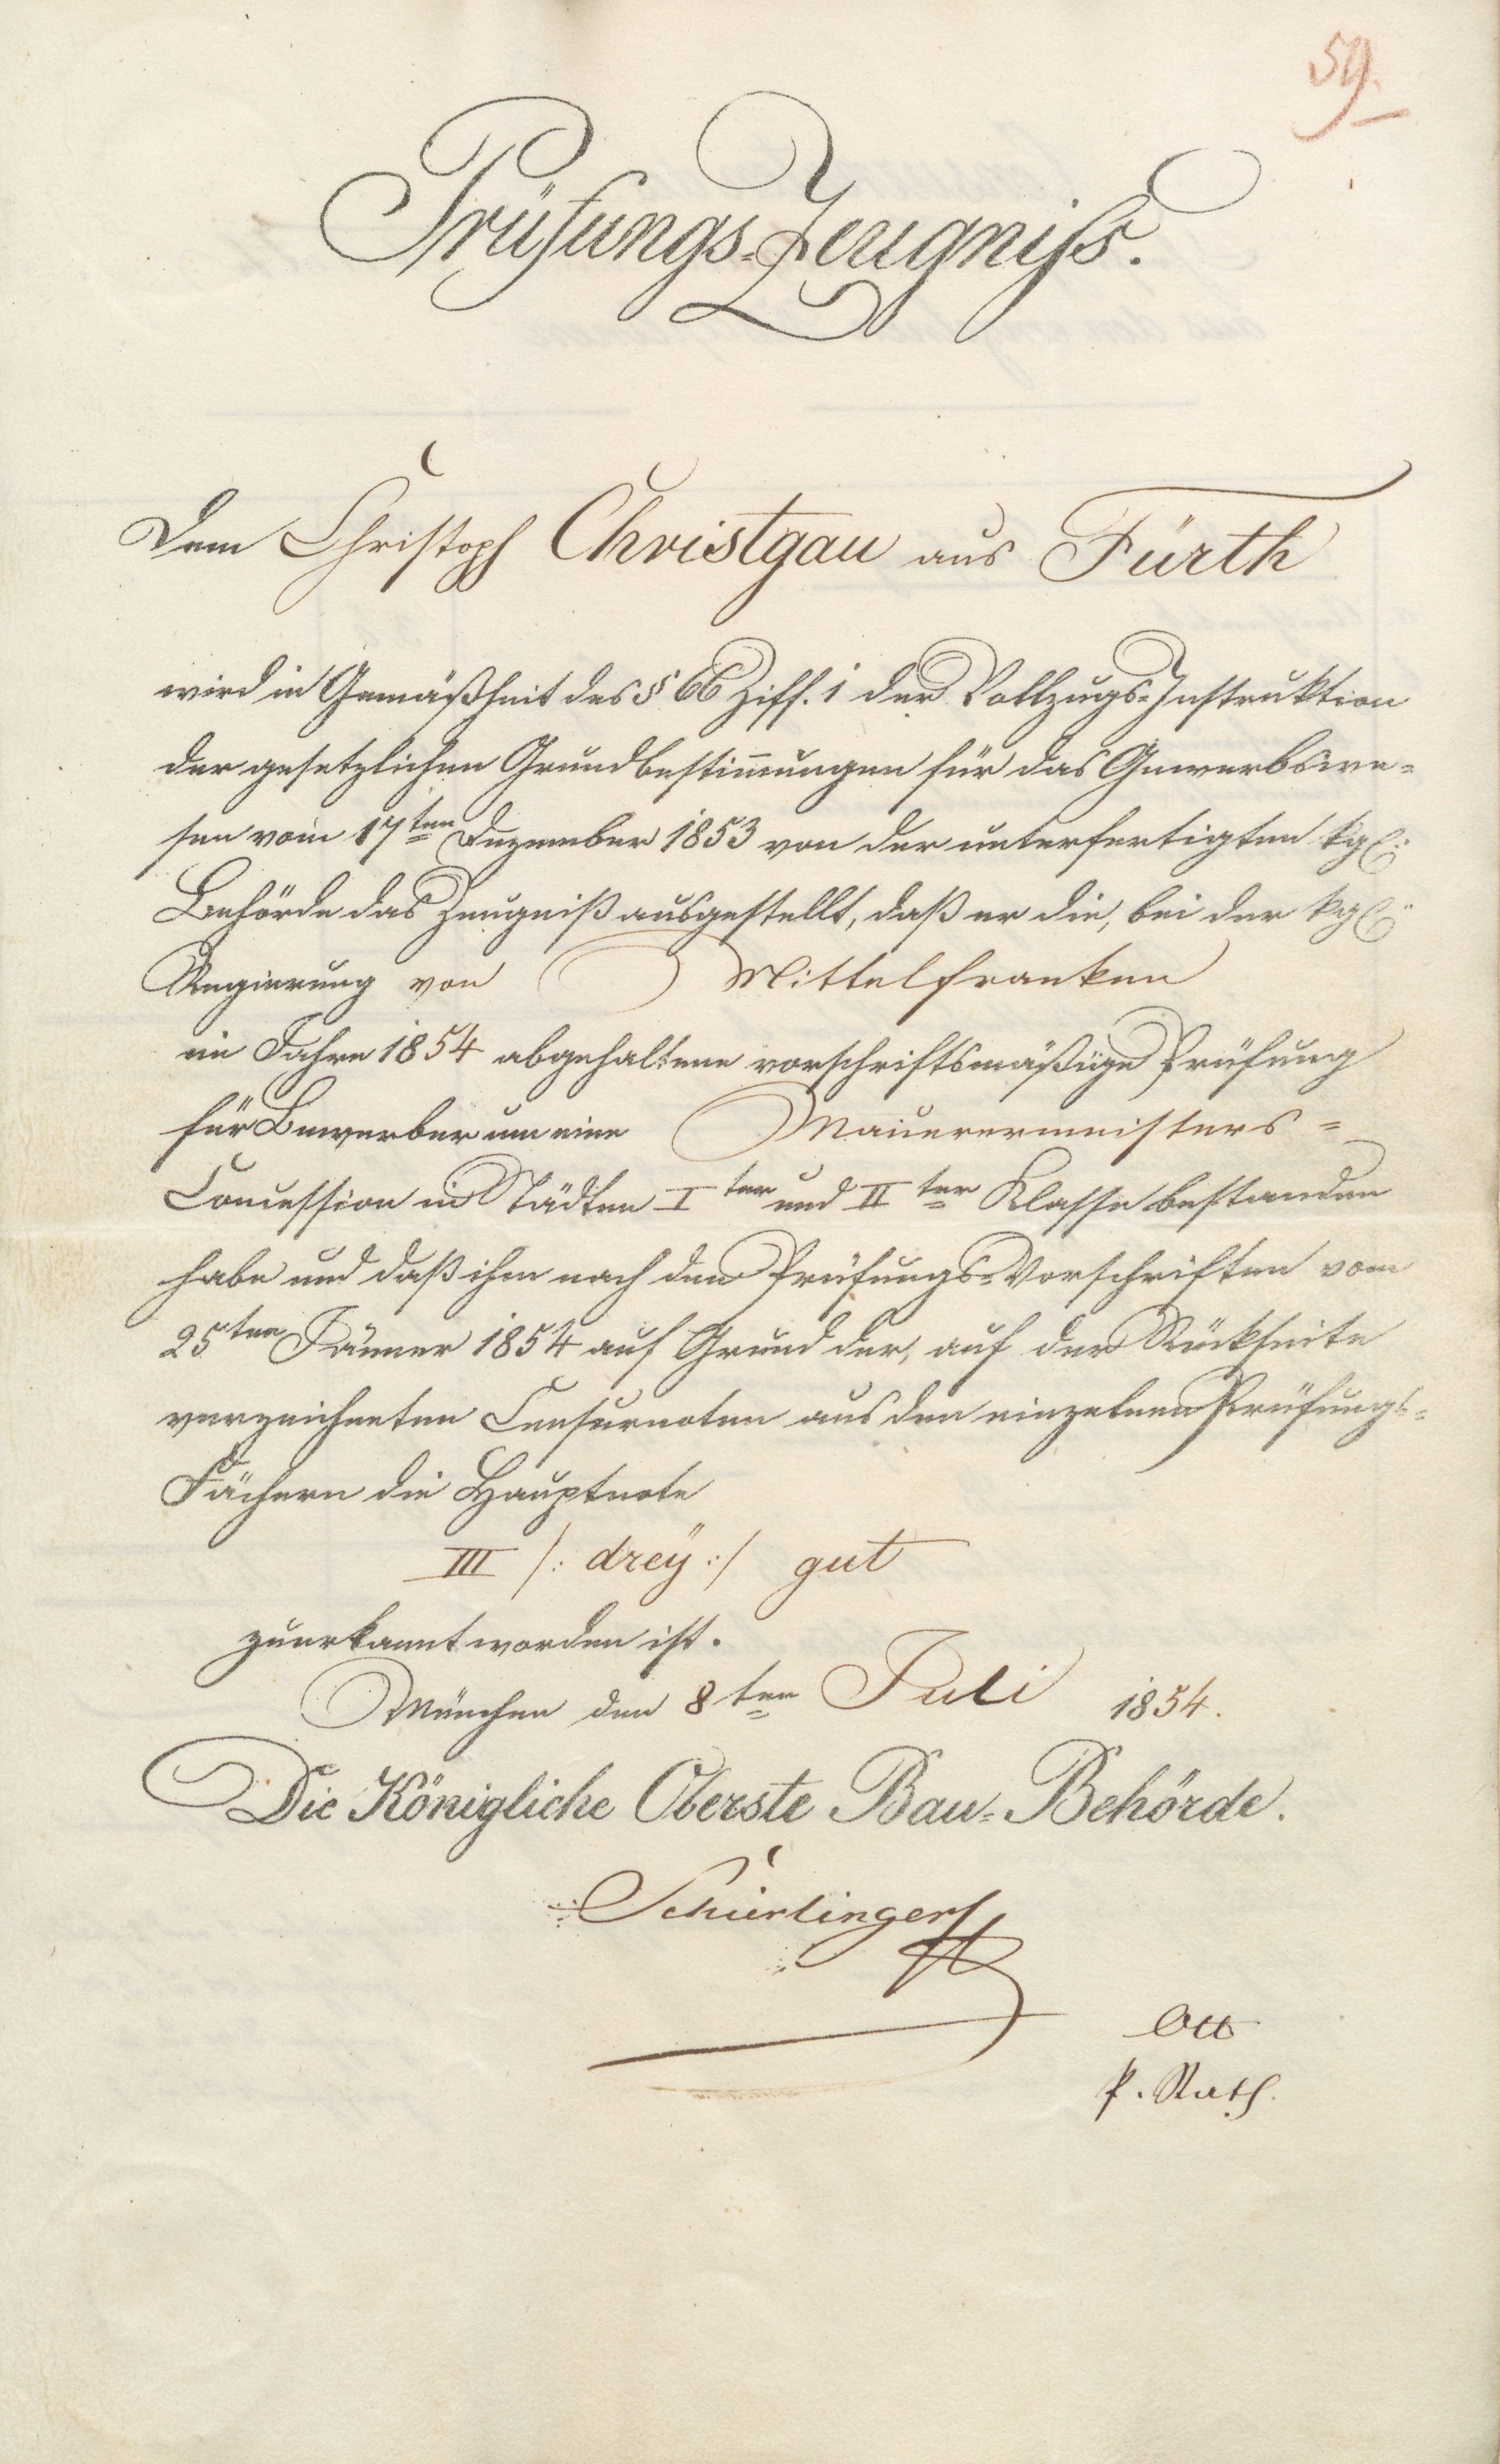 59.
Prüfungs-Zeugniß.
Dem Christoph Christgau aus Fürth
wird in Gemäßheit des § 66 Ziff. 1 der Vollzugs-Instruktion
der gesetzlichen Grundbestim̅ungen für das Gewerbswe-
sen vom 17ten Dezember 1853 von der unterfertigten kgl:
Behörde das Zeugniß ausgestellt, daß er die, bei der kgl:
Regierung von Mittelfranken
im Jahre 1854 abgehaltene vorschriftsmäßige Prüfung
für Bewerber um eine Mauerermeisters-
Concession in Städten Iter und IIter Klasse bestanden
habe und daß ihm nach den Prüfungs-Vorschriften vom
25ten Jänner 1854 auf Grund der, auf der Rückseite
verzeichneten Censurnoten aus den einzelnen Prüfungs-
Fächern die Hauptnote
III /: dreÿ :/ gut
zuerkannt worden ist.
München den 8ten Juli 1854.
Die Königliche Oberste Bau-Behörde.
Schierlinger
Ott